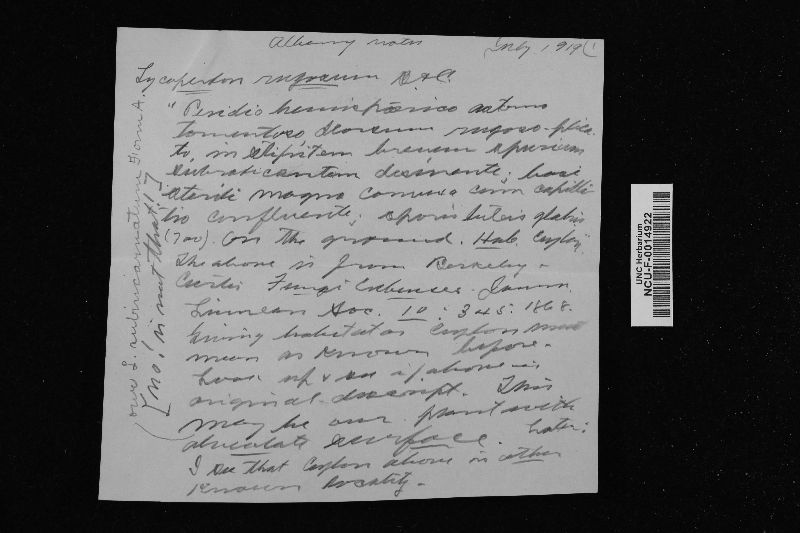 Albany notes July 1919 (1
Lycoperdon rugosum B & C.
"Peridio hemisphaerico
tomentoso, deorsum rugoso-plica-
to, in stipitem brevem spurium
subradicantem desinente; basi
sterili magna convexa cum capilli-
tio confluente; sporis luteis glabris
(700). On the ground. Hab. Ceylon"
The above is from Berkeley &
Curtis Fungi Cubenses Journ.
Linnean Soc. 10: 345. 1868.
Giving habitat as Ceylon must
mean as known before.
Look up & see if above is
original descript. This
may be our plant with
alveolate surface. Later:
I see that Ceylon above is other
known locality.
(our L. subincarnatum Form A.
[no! is not that!]
UNC Herbarium
NCU-F-0014922